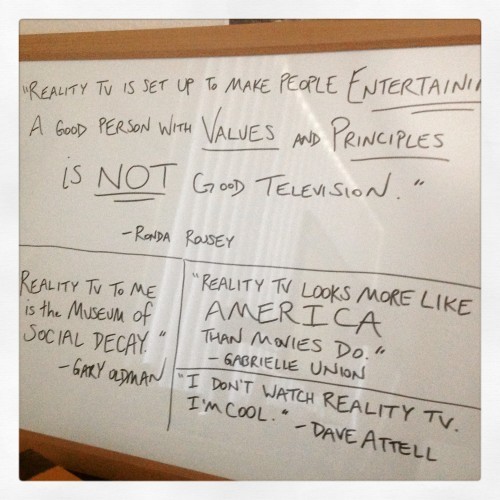 "REALITY TV IS SET UP TO MAKE PEOPLE ENTERTAINI
A GOOD PERSON WITH VALUES AND PRINCIPLES
iS NOT GOOD TELEVISION."
-RONDA ROUSEY
REALITY TV TO ME
is the MUSEUM of
SOCIAL DECAY."
-GARY OLDMAN
"REALITY TV LOOKS MORE LIKE
AMERICA
THAN MOVIES DO."
- GABRIELLE UNION
"I DON'T WATCH REALITY TV.
I'M COOL." -DAVE ATTELL